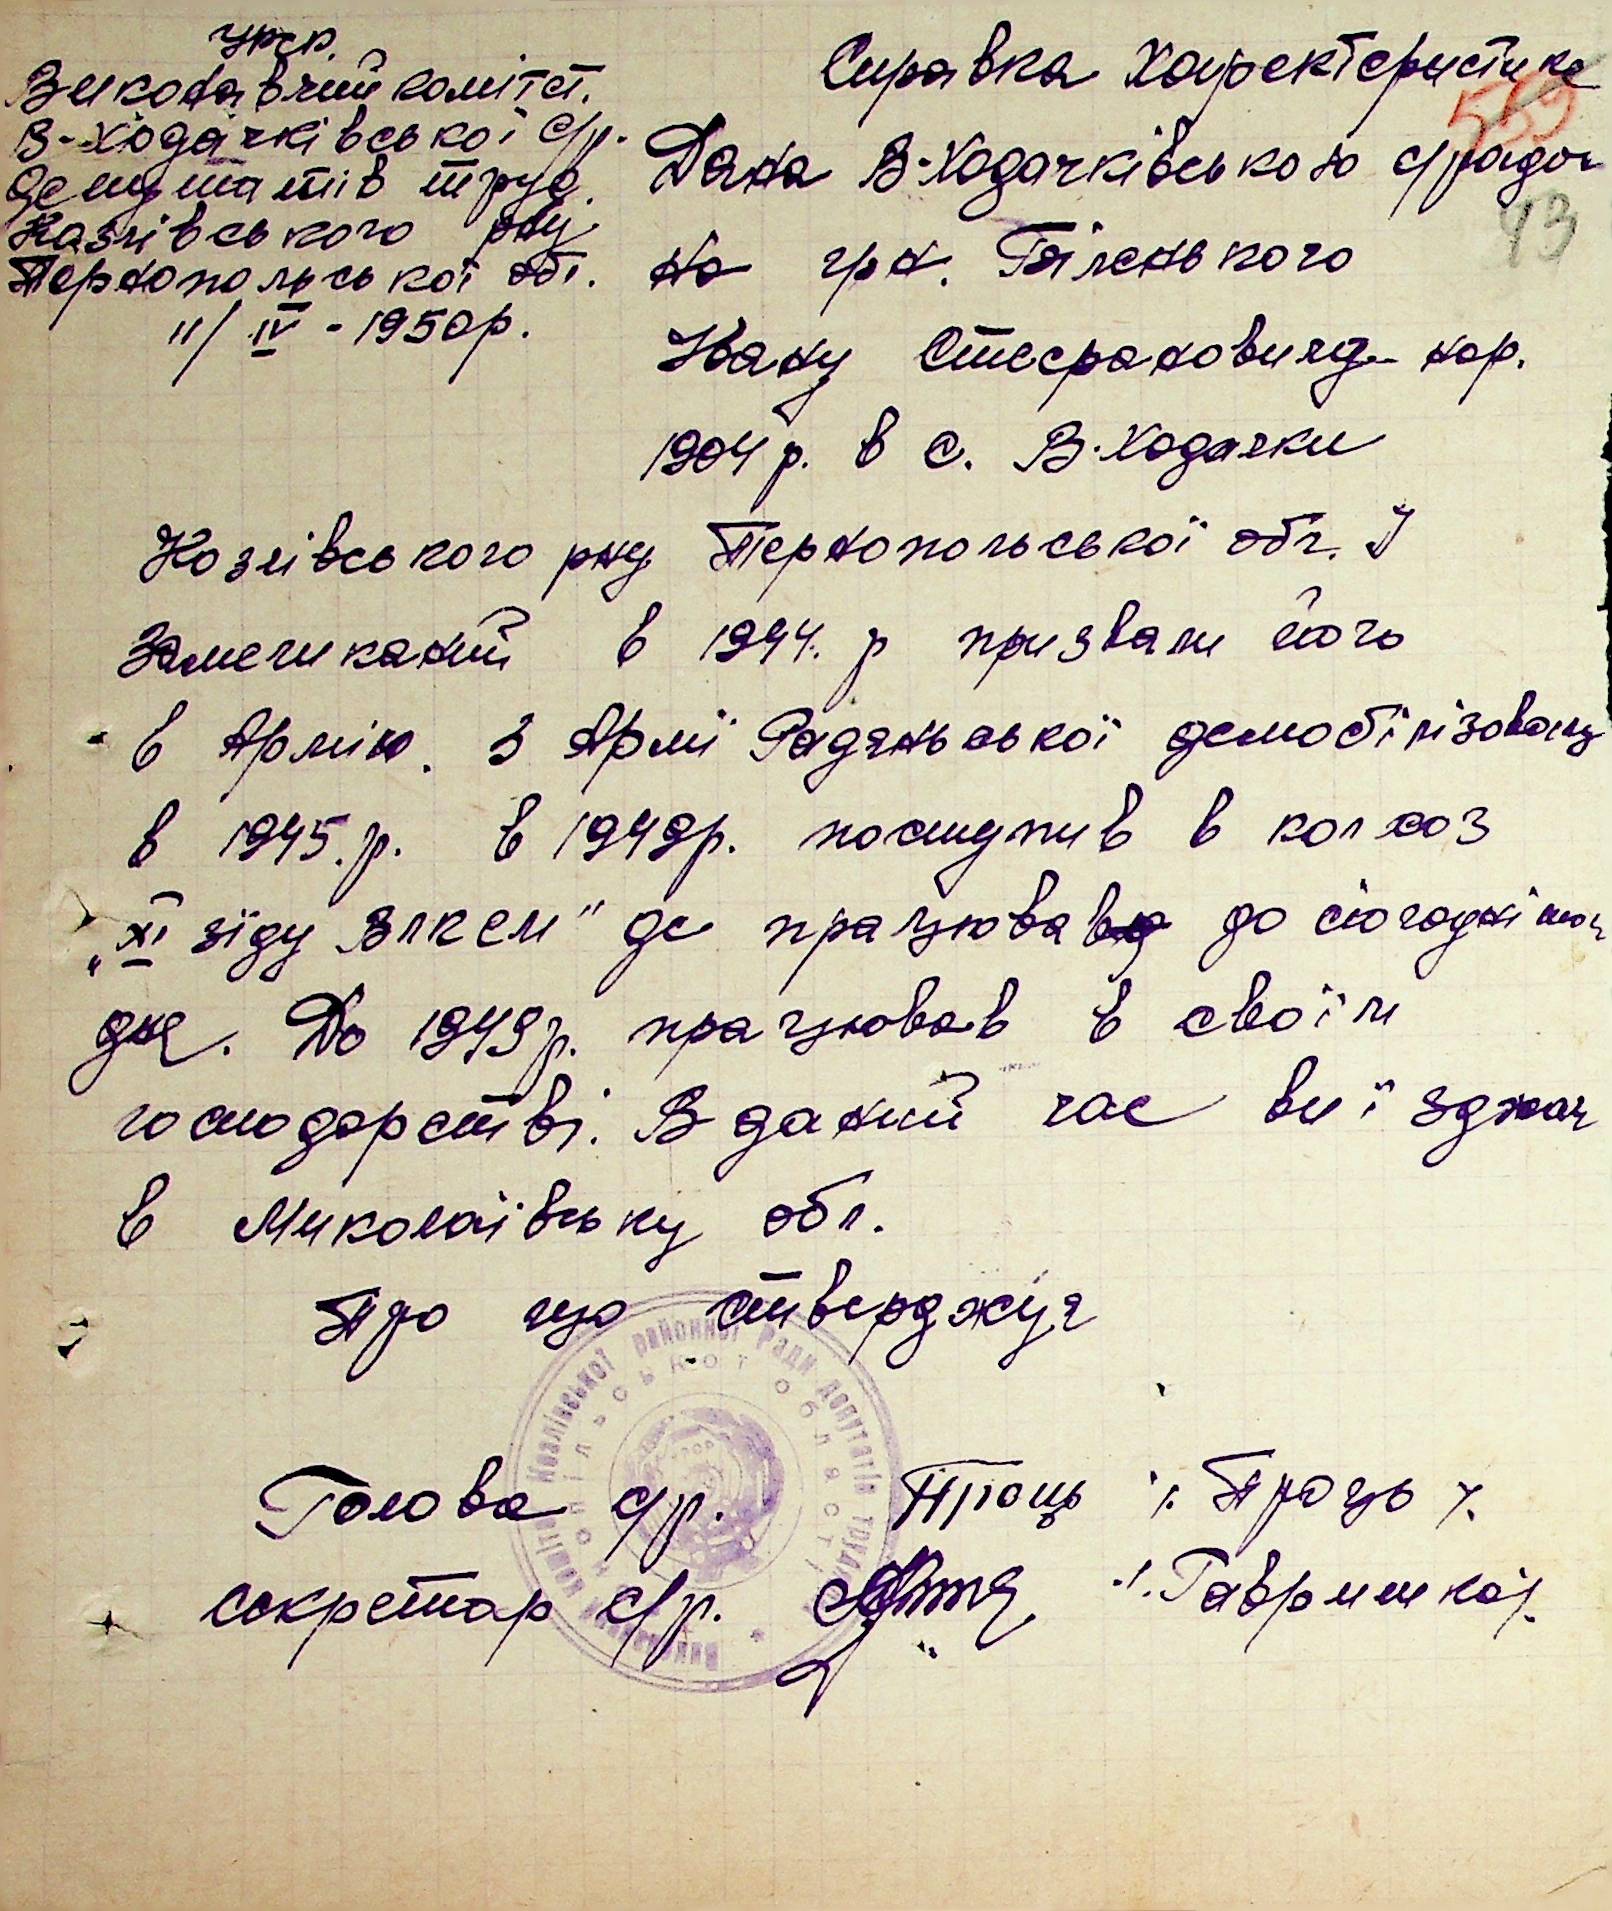 УРСР.
Виконавчий комітет.
В-Ходачківської с/р.
депутатів труд.
Козлівського рну
Тернопольської обл.
11/IV - 1950р.
Справка Характеристика
559
Дана В-Ходачківською с/радою
43
на грн. Гіленького
Івану Стефановича нар.
1904 р. в с. В-Ходачки
Козлівського рну Тернопольської обл. І
замешканий в 1944. р призвали його
в Армію. З Армії Радянської демобілізовану
в 1945. р. в 1949р. поступив в колхоз
„XI зїду ВЛКСМ" де працював до сіогоднішог
дня. До 1949 р. працював в своїм
господарстві. В даний час виїзджає
в Миколаївську обл.
Про що стверджує
Голова с/р. Троць /. Троць /.
секретар с/р. /. Гавришко/.
Виконавчий комітет Козлівської районної Ради депутатів трудящих
Тернопільської області